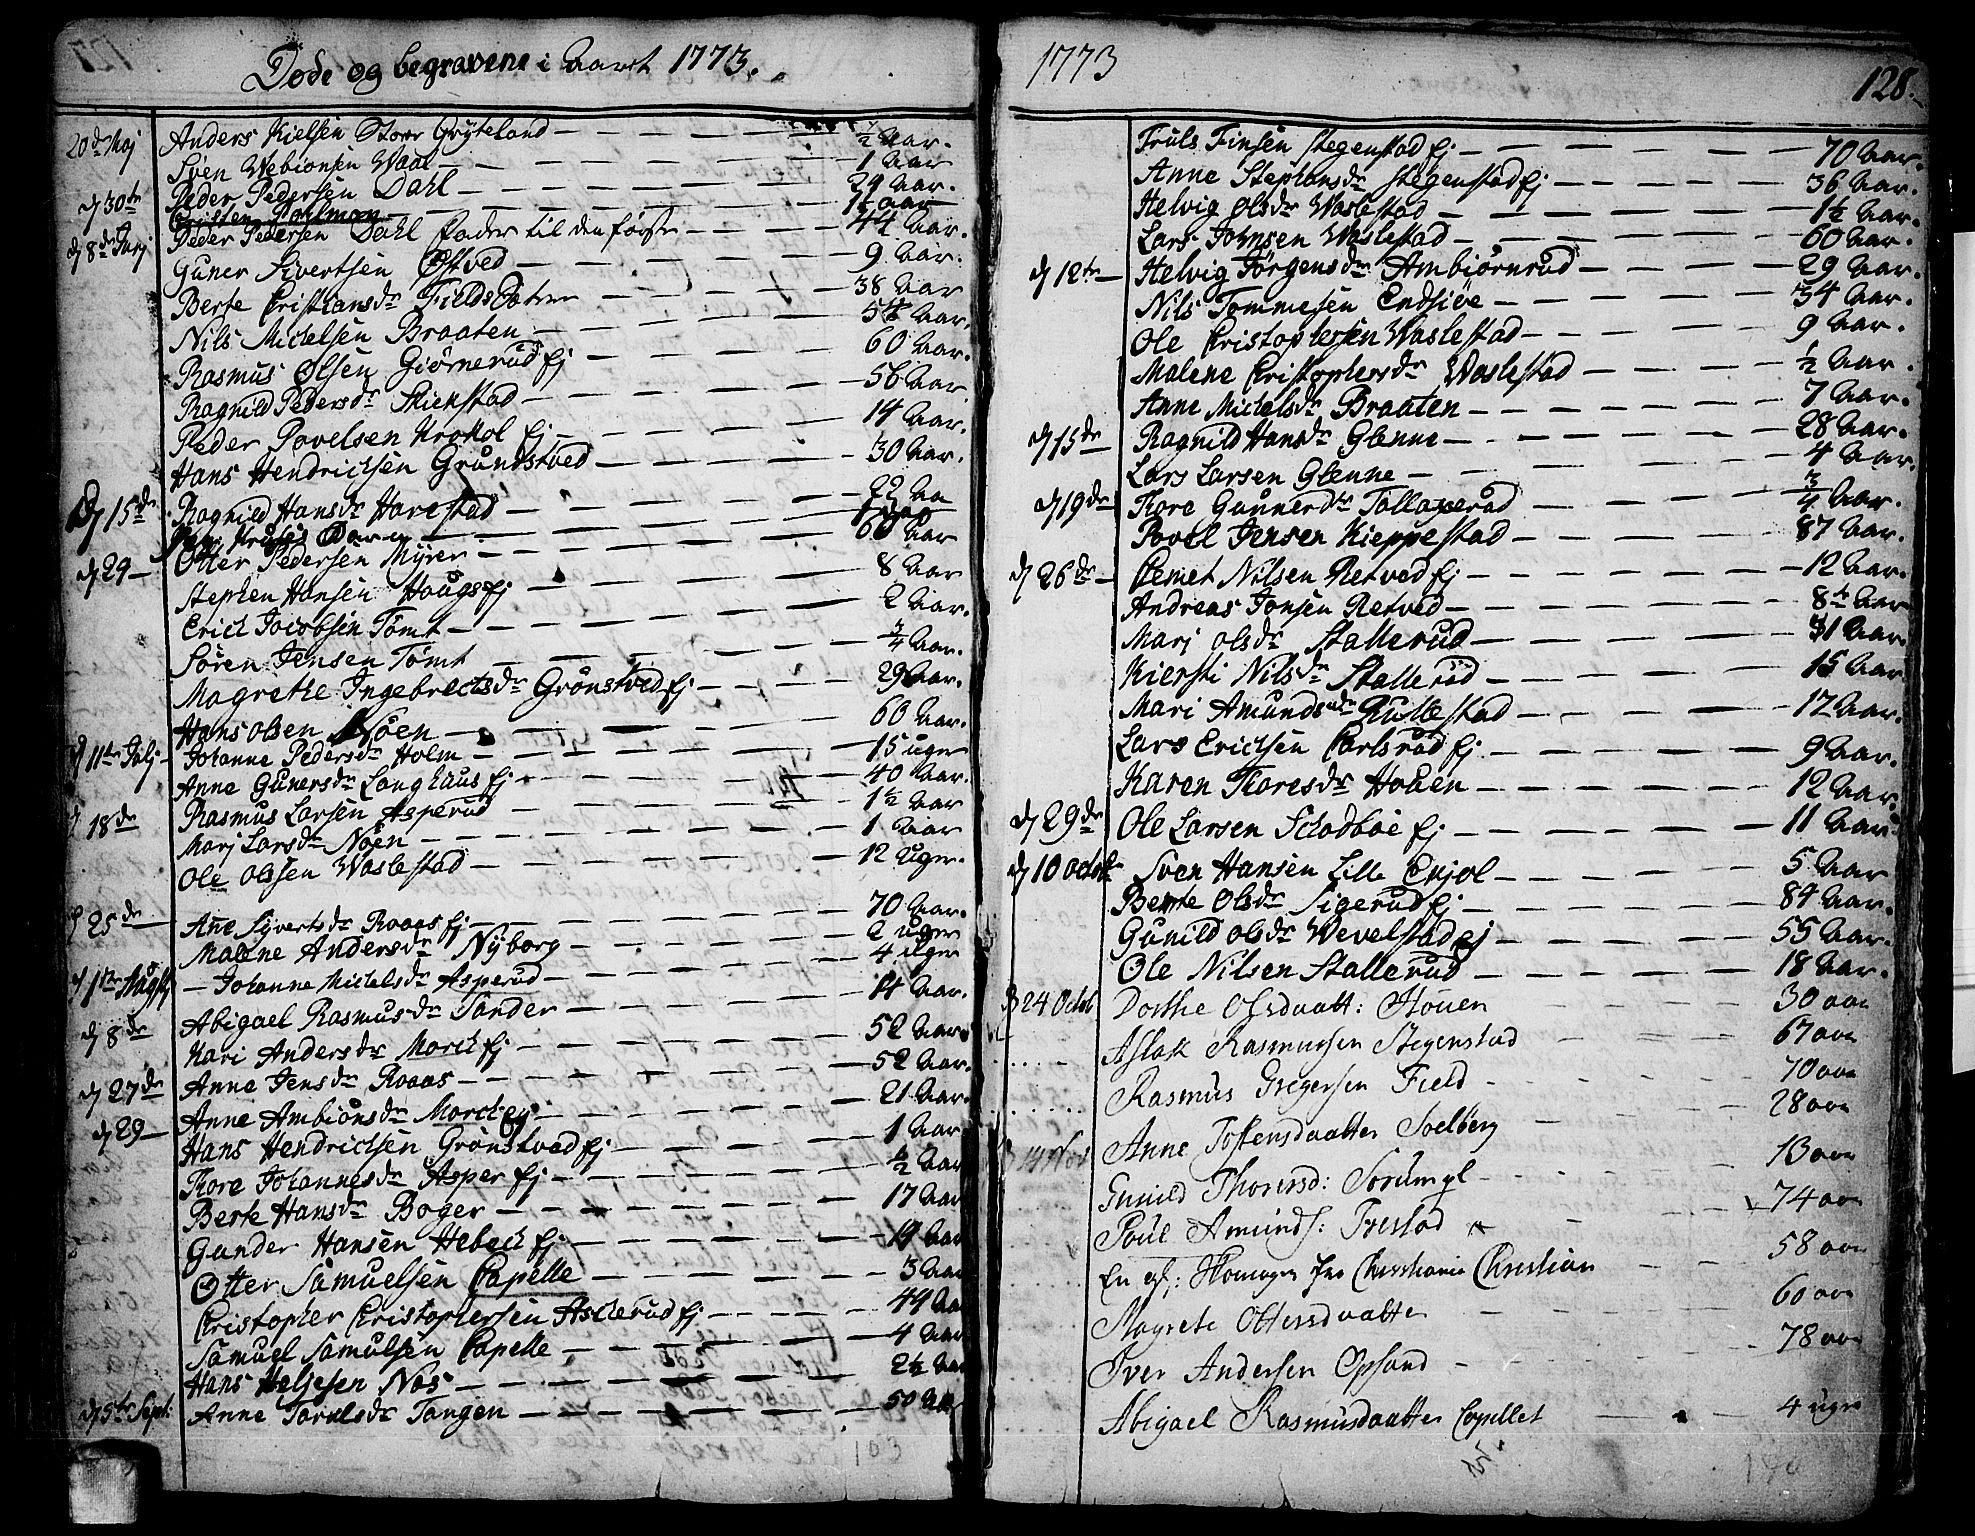 Døde og begravene i Aaret 1773.
20de Maj Anders Kielsen Stoer Grÿteland — ½ Aar.
Sven Webionsen Waal — 1 Aar
d 30te Peder Pedersen Dahl — 29 Aar.
Peder Pedersen Dahl Fader til den første — 44 Aar.
d 8de Junj
Guner Sivertsen Østved — 9 Aar.
Berte Cristiansdr — 38 Aar
Nils Michelsen Braaten — Aar.
Rasmus Olsen Giørnerud Ej — 60 Aar.
Ragnild Pedersdr Skienstad — 56 Aar
Peder Povelsen Krokol Ej — 14 Aar.
Hans Hendrichsen Grünstved — 30 Aar.
d 15de Ragnild Hansdr Harestad — 22 Aa
d 29 — Otter Pedersen Mÿrer — 60 Aar
Stephen Hansen Haugs Ej — 8 Aar
Erich Jacobsen Tomt — 2 Aar.
Søren Jensen Tømt — ¾ Aar.
Magrethe Ingebrectsdr Grønstved Ej — 29 Aar.
Hans Olsen Nøen — 60 Aar.
d 11te Julj — Johanne Pedersdr Holm — 15 uger
Anne Gunersdr Langhuus Ej — 40 Aar.
d 18de Rasmus Larsen Asperud — 1½ Aar
Marj Larsdr Nøen — 1 Aar
Ole Olssen Waslestad — 12 Uger.
d 25de — Ane Syvertsdr Roaas Ej — 70 Aar.
Malene Andersdr Nÿborg — 2 Uger
d 1te Augstj — Johanne Michelsdr Asperud — 4 uger
Abigael Rasmusdr Sander — 14 Aar.
d 8de Kari Andersdr Morch Ej — 52 Aar.
d 27de Anne Jensdr Roaas — 52 Aar.
d 29 — Anne Ambiønsdr Morch Ej — 21 Aar.
Hans Hendrichsen Grønstved Ej — 1 Aar
Thore Johannesdr Asper Ej — ½ Aar
Berte Hansdr Boger — 17 Aar
Gunder Hansen Hebech Ej — 19 Aar
Otter Samuelsen Capelle — 3 Aar
Christopher Christophersen Ascherud Ej — 49 Aar
Samuel Samulsen Capelle — 4 Aar
Hans Helgesen Næs — 2½ Aar
d 5te Sept: Anne Tarulsdr Tangen — 50 Aar
103
1773
128.
Truls Finsen Stegenstad Ej — 70 Aar.
Anne Stephansdr Stegenstad Ej — 36 Aar.
Helvig Olsdr Waslestad — 1½ Aar.
Lars Johnsen Waslestad — 60 Aar.
d 12te — Helvig Jørgensdr Ambiørnrud — 29 Aar.
Nils Tommesen Endsiøe — 34 Aar.
Ole Cristophersen Waslestad — 9 Aar.
Malene Christophersdr Waslestad — ½ Aar.
Anne Michelsdr Braaten — 7 Aar.
d 15de Ragnild Hansdr Glenne — 28 Aar.
Lars Larsen Glenne — 4 Aar.
d 19de Thore Gunnerdtr Tollaxerud — ¾ Aar.
Povel Jensen Kieppestad — 87 Aar.
d 26de — Clemet Nilsen Retved Ej — 12 Aar.
Andreas Jonsen Retved — 8½ Aar
Marj Olsdr Stallerud — 31 Aar.
Kiersti Nilsdr Stallerud — 15 Aar.
Mari Amundsdr Rullestad — 12 Aar.
Lars Erichsen Carlsrud Ej — 9 Aar.
Karen Thoresdr Houen — 12 Aar.
d 29de Ole Larsen Schodbøe Ej — 11 Aar.
d 10 Octobr Sven Hansen Lille Enjol — 5 Aar
Bente Olsdr Sigerud Ej — 84 Aar.
Gunild Olsdr Wevelstad Ej — 55 Aar.
Ole Nilsen Stallerud — 18 Aar.
d 24 Octob Dorthe Olsdaatt: Houen 30 aar
Aslak Rasmussen Stegenstad — 67 aar
Rasmus Gregersen Field — 70 aar
Anne Tostensdaatter Soelberg — 28 aar
14 Nov Gunild Thorersd: Sorum gl — 13 aar
Poul Amunds: Ivestad — 74 aar
En gl: fra Christiania Christian — 58 aar
Magrete Ottersdaatter — 60 aar
Iver Andersen Opsand — 78 aar
Abigael Rasmusdaatter Capellet — 4 uger